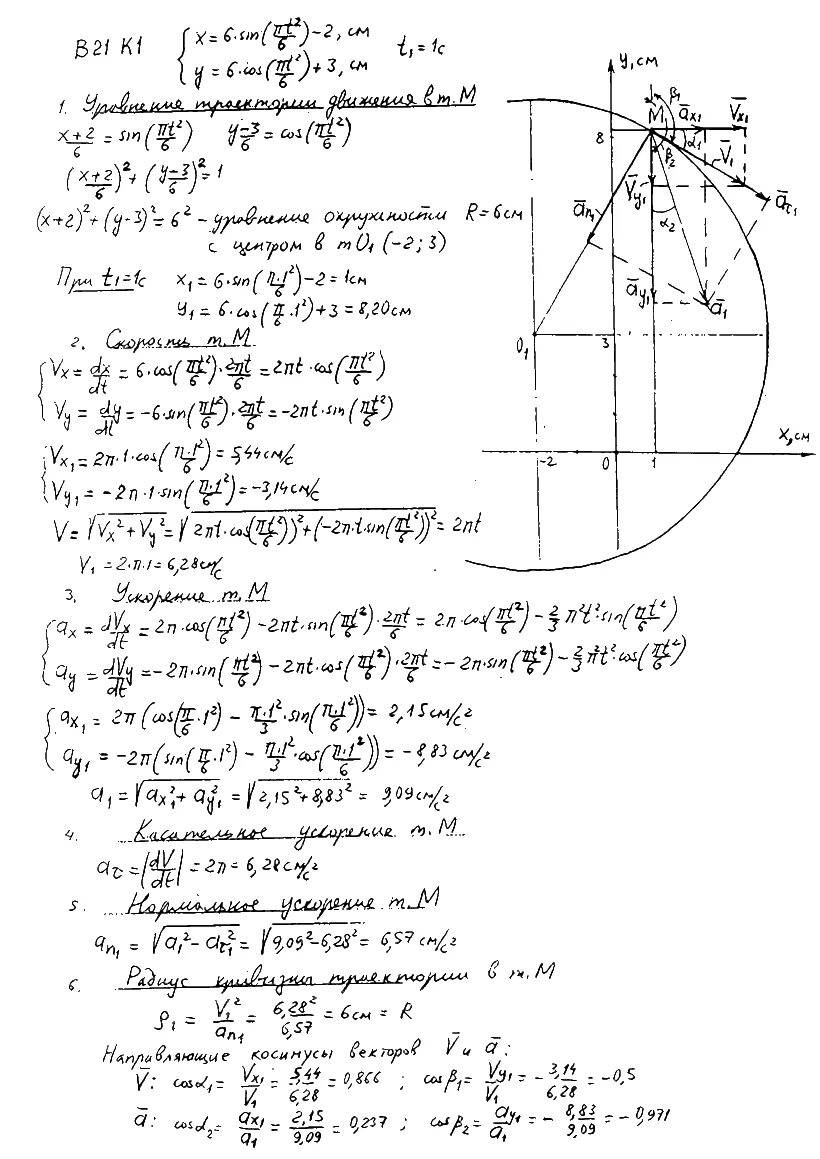 В21 К1 { x = 6·sin(πt²/6) - 2, см
y = 6·cos(πt²/6) + 3, см t₁ = 1с
1. Уровнение траектории движения в т. М
(x+2)/6 = sin(πt²/6) (y-3)/6 = cos(πt²/6)
((x+2)/6)² + ((y-3)/6)² = 1
(x+2)² + (y-3)² = 6² - уровнение окружности R = 6см
с центром в т O₁ (-2; 3)
При t₁ = 1с x₁ = 6·sin(π·1²/6) - 2 = 1см
y₁ = 6·cos(π/6·1²) + 3 = 8,20см
2. Скорость т. М
{ Vx = dx/dt = 6·cos(πt²/6)·2πt/6 = 2πt·cos(πt²/6)
Vy = dy/dt = -6·sin(πt²/6)·2πt/6 = -2πt·sin(πt²/6)
{ Vx₁ = 2π·1·cos(π·1²/6) = 5,44см/с
Vy₁ = -2π·1·sin(π·1²/6) = -3,14см/с
V = √(Vx² + Vy²) = √(2πt·cos(πt²/6))² + (-2π·t·sin(πt²/6))² = 2πt
V₁ = 2·π·1 = 6,28см/с
3. Ускорение т. М
{ ax = dVx/dt = 2π·cos(πt²/6) - 2πt·sin(πt²/6)·2πt/6 = 2π·cos(πt²/6) - 2/3 π²t²·sin(πt²/6)
ay = dVy/dt = -2π·sin(πt²/6) - 2πt·cos(πt²/6)·2πt/6 = -2π·sin(πt²/6) - 2/3 π²t²·cos(πt²/6)
{ ax₁ = 2π(cos(π/6·1²) - π·1²/3·sin(π·1²/6)) = 2,15см/с²
ay₁ = -2π(sin(π/6·1²) - π·1²/3·cos(π·1²/6)) = -8,83см/с²
a₁ = √(ax₁² + ay₁²) = √(2,15² + 8,83²) = 9,09см/с²
4. Касательное ускорение т. М
aτ = |dV/dt| = 2π = 6,28см/с²
5. Нормальное ускорение т. М
an₁ = √(a₁² - aτ₁²) = √(9,09² - 6,28²) = 6,57см/с²
6. Радиус кривизны траектории в т. М
ρ₁ = V₁²/an₁ = 6,28²/6,57 = 6см = R
Направляющие косинусы векторов V̄ и ā:
V̄: cosα₁ = Vx₁/V₁ = 5,44/6,28 = 0,866 ; cosβ₁ = Vy₁/V₁ = -3,14/6,28 = -0,5
ā: cosα₂ = ax₁/a₁ = 2,15/9,09 = 0,237 ; cosβ₂ = ay₁/a₁ = -8,83/9,09 = -0,971
y, см
β₁
M₁ āx₁ V̄x₁
8
α₁
β₂ V̄₁
V̄y₁
ān₁ āτ₁
α₂
āy₁ ā₁
O₁ 3
x, см
-2 0 1